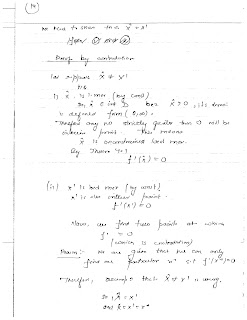 (14)
we need to show that x̂ = x'
Proof by contradiction
Let suppose x̂ ≠ x'
(i) x̂ is l-max (by cond)
So, x̂ ∈ int D b/c x̂ > 0, its domain
is defined form (0, ∞).
Therefore any no. strictly greater than 0 will be
interior point. This means
x̂ is unconstrained local max.
By Theorem 4.1
f'(x̂) = 0
(ii) x' is local max (by cond)
x' is also interior point
f'(x') = 0
Now, we find two points at which
f' = 0
(which is contradiction)
Reason:- We are given that we can only
find one particular x* s.t. f'(x*) = 0
Therefore, assumption that x̂ ≠ x' is wrong.
So, x̂ = x'
and x̂ = x' = x*